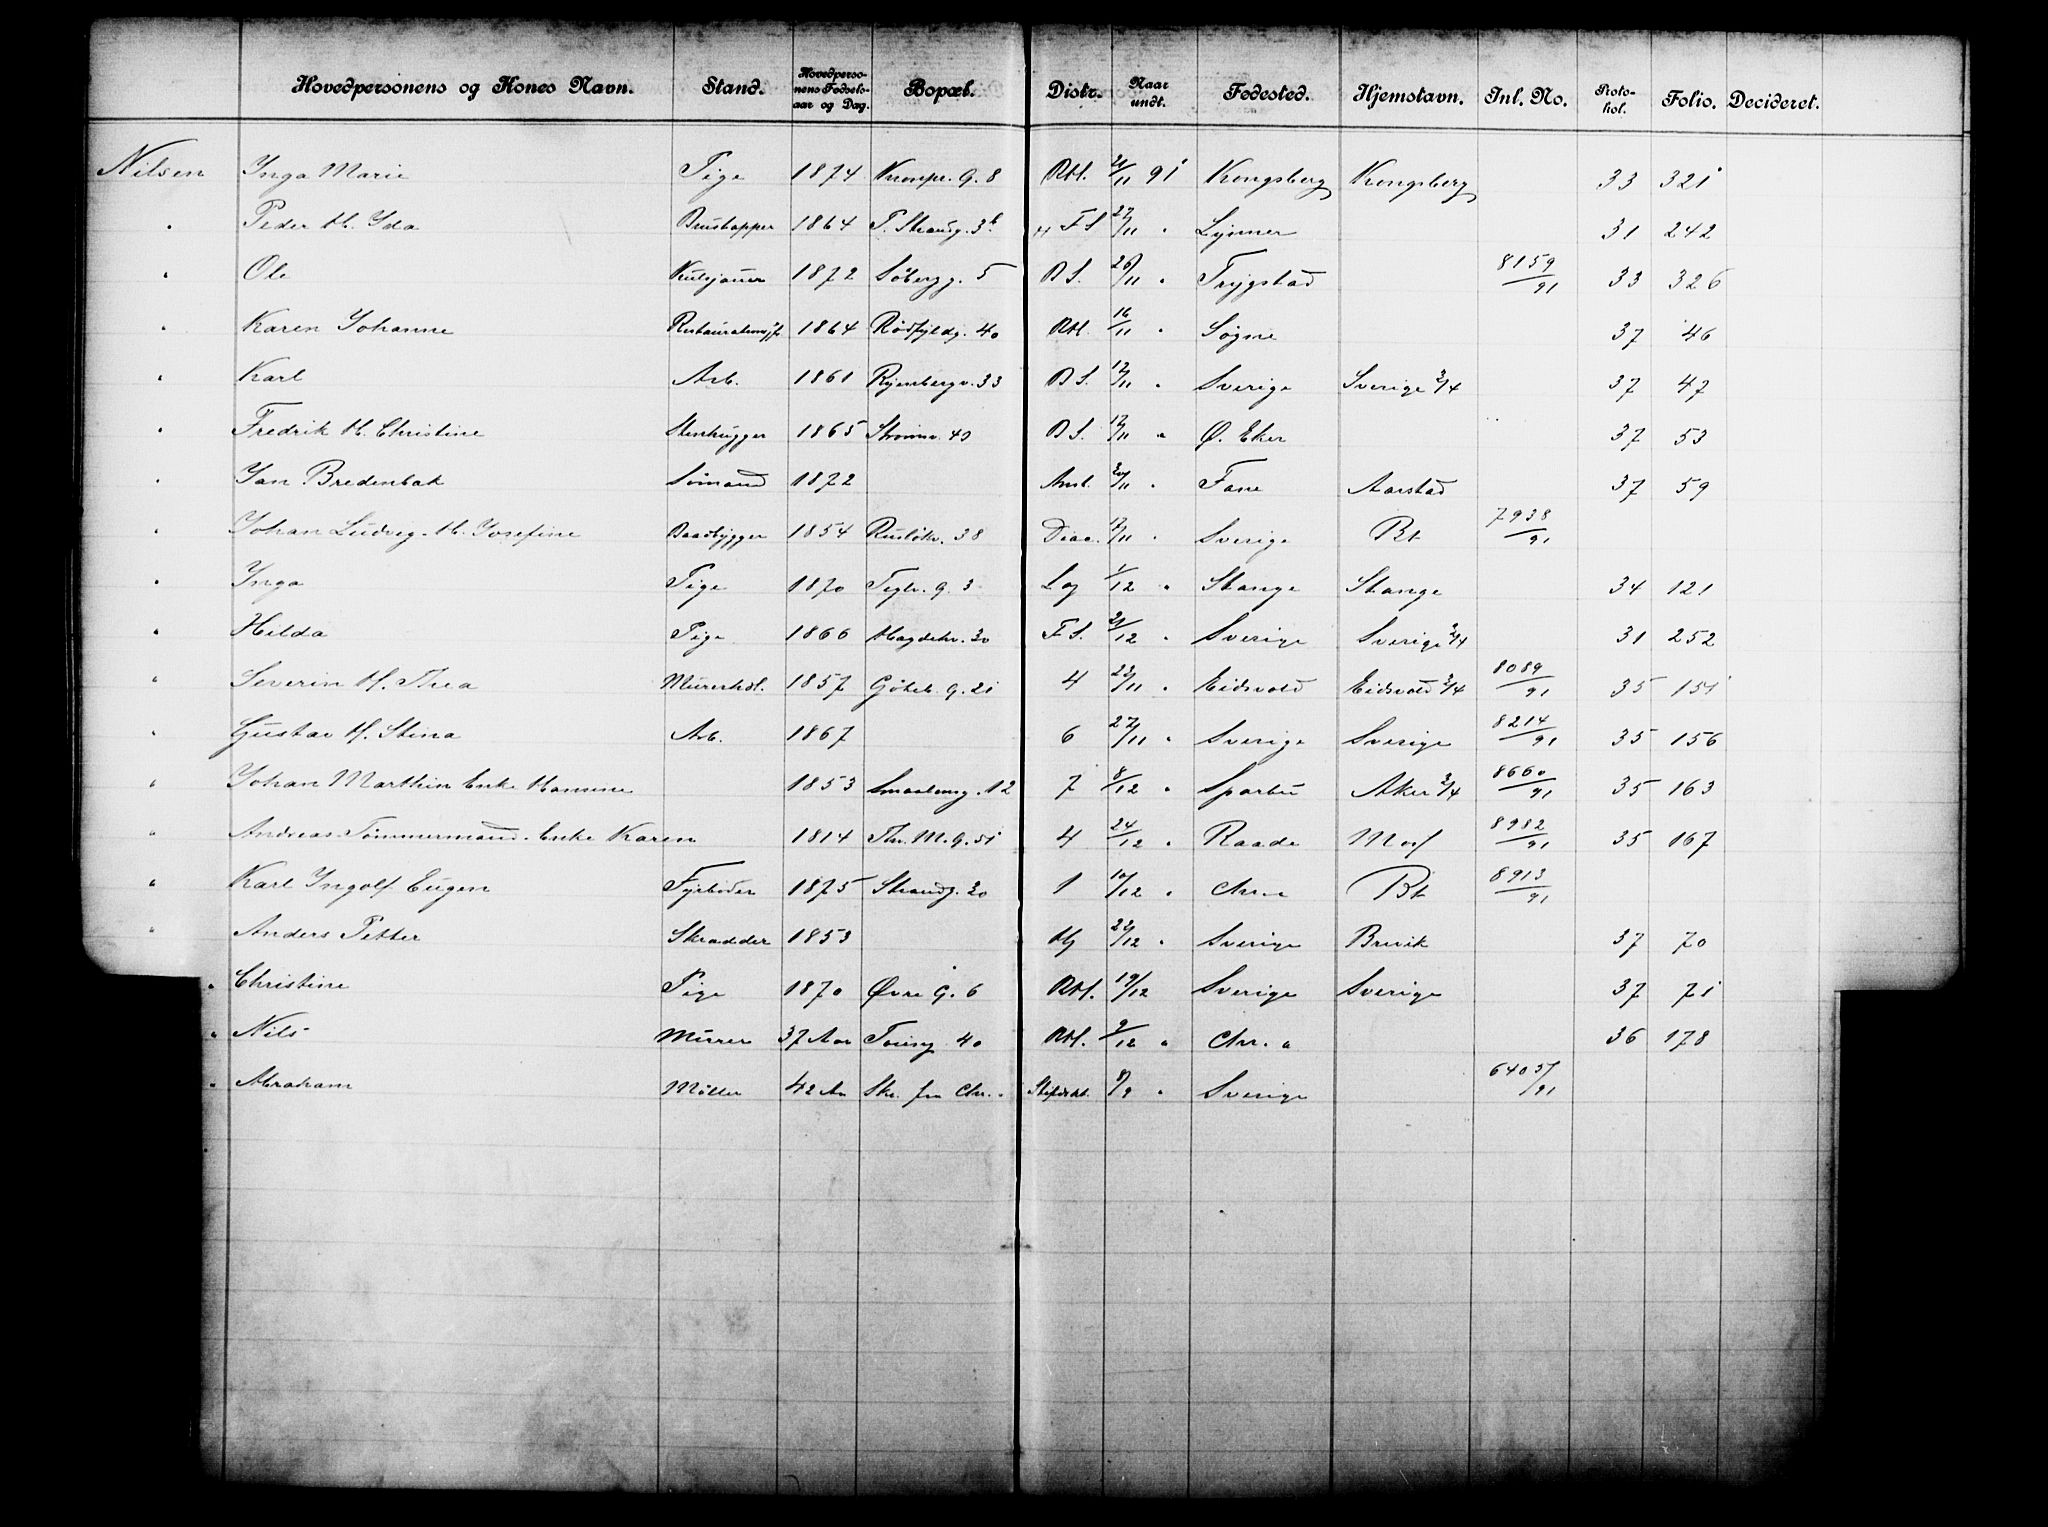 Hovedpersonens og Kones Navn. Stand. Hovedpersonens Fødselsaar og Dag. Bopæl. Distr. Naar undt. Fødested. Hjemstavn. Inl. No. Protokol. Folio. Decideret.
Nilsen Inga Marie Pige 1874 Kronpr. G. 8 RH. 21/11 91 Kongsberg Kongsberg 33 321
" Peder H. Ida Brustapper 1864 T. Strandg. 3 b 4 FS 27/11 " Lynner 31 242
" Ole Kulsjauer 1872 Søbergg. 5 B S. 26/11 " Trygstad 8159/91 33 326
" Karen Johanne 1864 Rødfyldg. 40 RH. 16/11 " Søgne 37 46
" Karl Arb. 1861 Ryenbergv. 33 B S. 12/11 " Sverige Sverige 2/4 37 47
" Fredrik H. Christine Stenhugger 1865 Strømsv. 49 B S. 17/11 " Ø. Eker 37 53
" Jan Bredenbak Sømand 1872 20/11 " Fane Aarstad 37 59
" Johan Ludvig H. Josefine Baadbygger 1854 Rusløkv. 38 Diac. 17/11 " Sverige Bt 7938/91
" Inga Pige 1870 Teglv. G. 3 Log 1/12 " Stange Stange 34 121
" Hilda Pige 1866 31 F S. 29/12 " Sverige Sverige 2/4 31 252
" Severin H. Thea Murerhdl. 1857 Göteb. G. 21 4 23/11 " Eidsvold Eidsvold 2/4 8089/91 35 151
" Gustav H. Stina Arb. 1867 6 27/11 " Sverige Sverige 8214/91 35 156
" Johan Marthin Enke Hansine 1853 Smaalensg. 12 7 8/12 " Sparbu Aker 2/4 8660/91 35 163
" Andreas Tømmermand. Enke Karen 1814 Thv. M. G. 51 4 24/12 " Raade Moss 8982/91 35 167
" Karl Ingolf Eugen Fyrbøder 1875 Strandg. 20 1 10/12 " Chr.a Bt 8913/91
" Anders Petter Skrædder 1853 22/12 " Sverige Brevik 37 70
" Christine Pige 1870 Øvre G. 6 RH. 19/12 Sverige Sverige 37 71
" Nils Murer 37 Aar 40 RH. 9/12 " Chr.a 36 178
" Abraham Møller 42 Aar Skr. fra Chr.a 8/9 " Sverige 6405/91